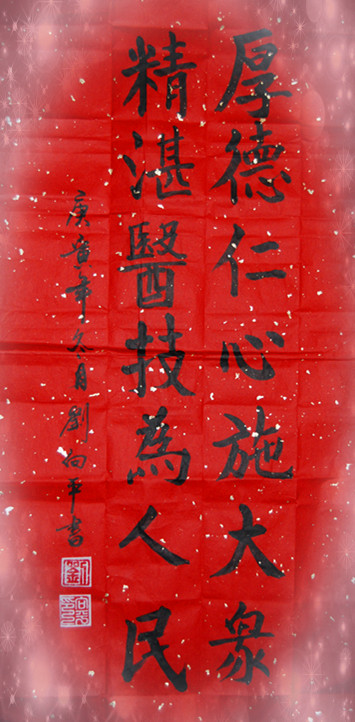 厚德仁心施大衆
精湛醫技為人民
庚寅年冬月劉向平書